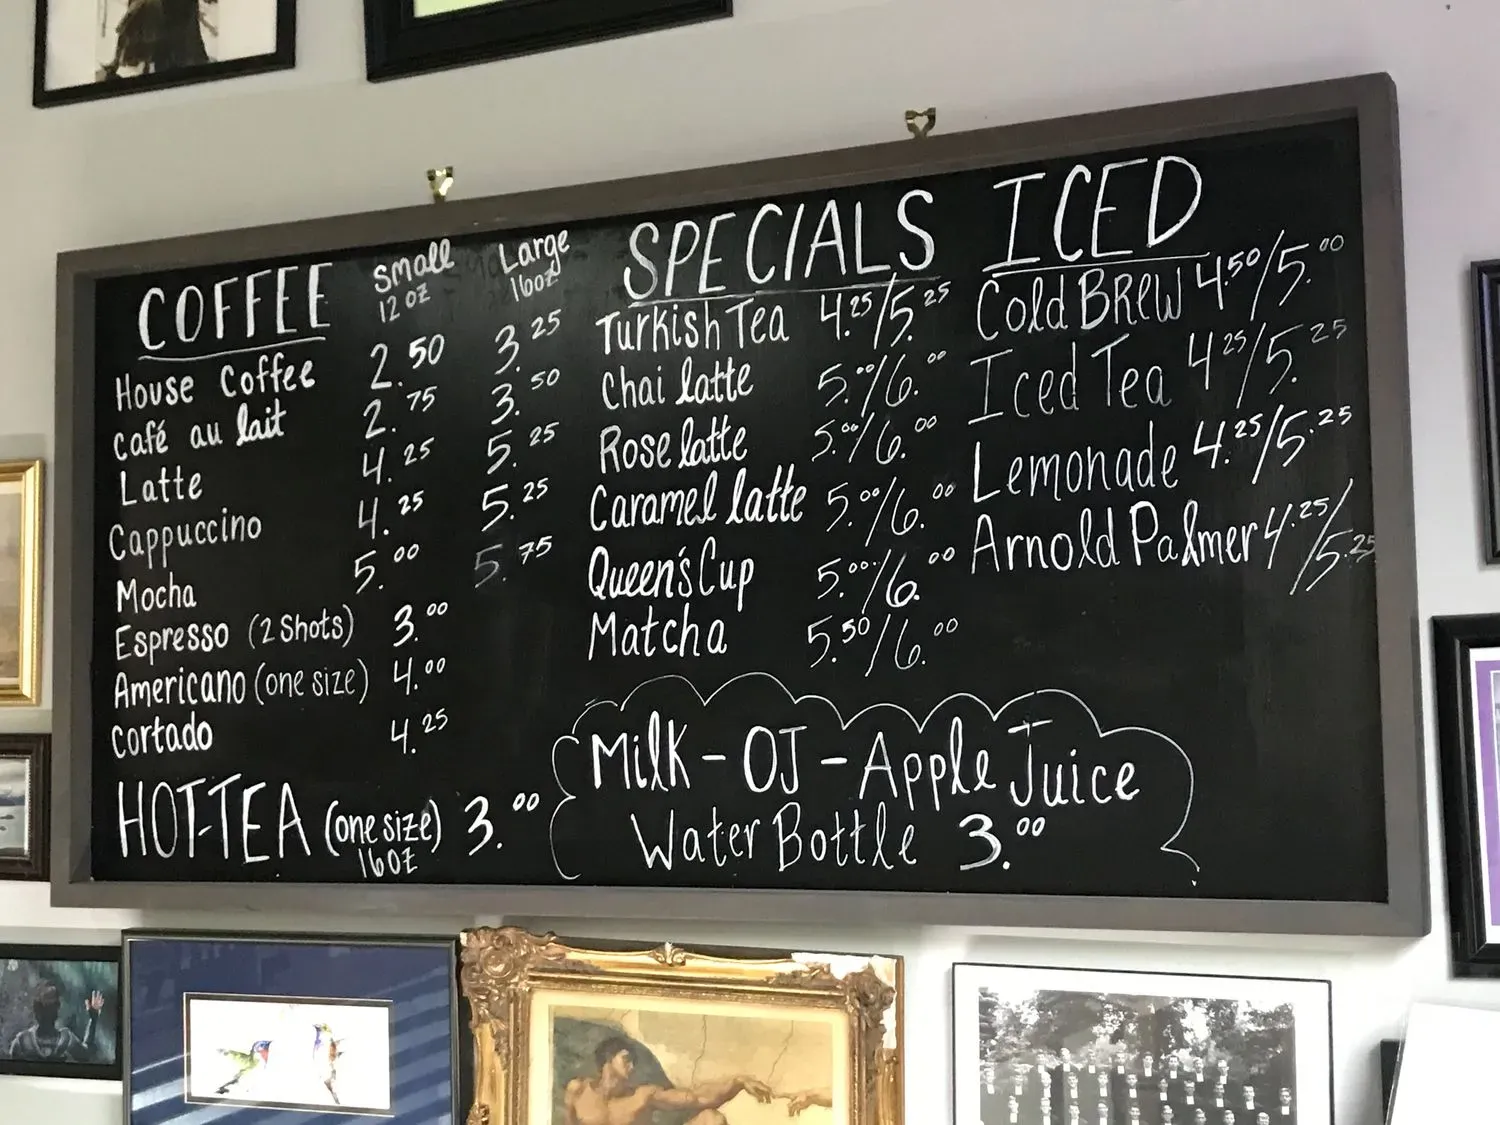 COFFEE Small Large
12 oz 16oz
House Coffee 2.50 3.25
café au lait 2.75 3.50
Latte 4.25 5.25
Cappuccino 4.25 5.25
Mocha 5.00 5.75
Espresso (2 Shots) 3.00
Americano (one size) 4.00
Cortado 4.25
HOT-TEA (one size) 3.00
16oz
SPECIALS
Turkish Tea 4.25/5.25
Chai latte 5.00/6.00
Rose latte 5.00/6.00
Caramel latte 5.00/6.00
Queen's Cup 5.00/6.00
Matcha 5.50/6.00
ICED
Cold BREW 4.50/5.00
Iced Tea 4.25/5.25
Lemonade 4.25/5.25
Arnold Palmer 4.25/5.25
Milk - OJ - Apple Juice
Water Bottle 3.00